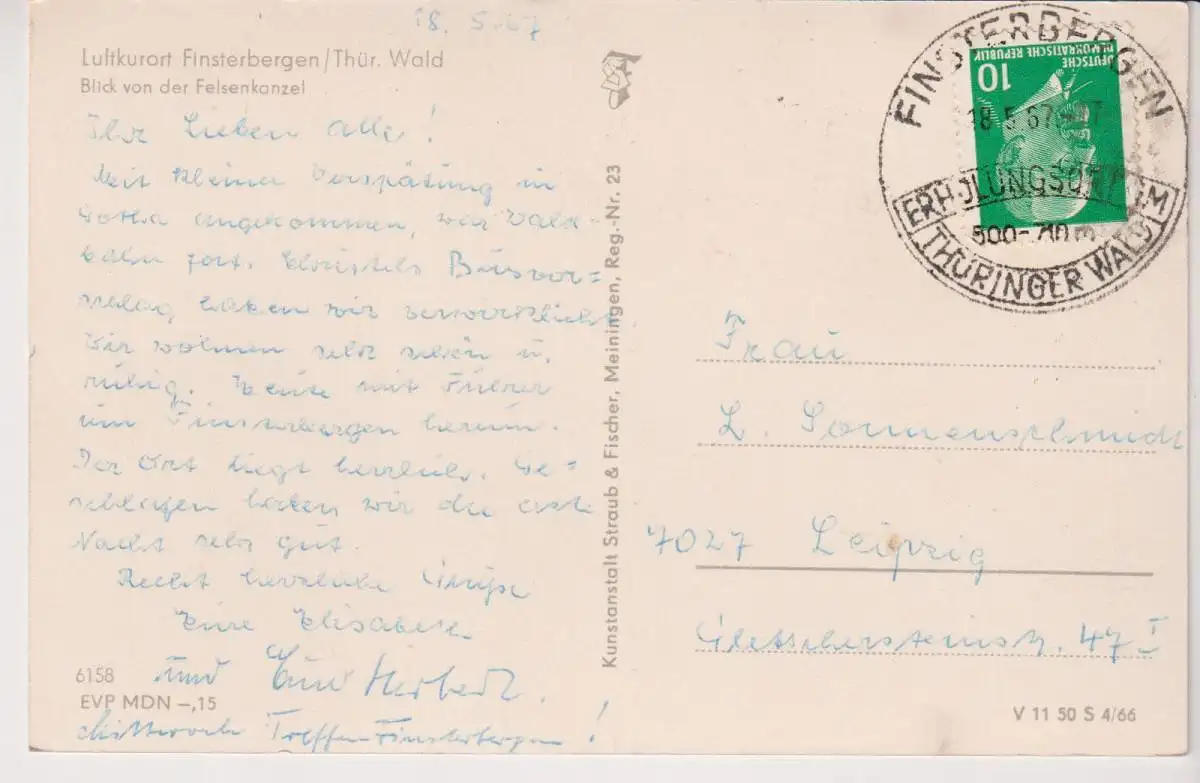 18. 5. 67
Luftkurort Finsterbergen/Thür. Wald
Blick von der Felsenkanzel
Ihr Lieben alle!
Mit kleiner Verspätung in
Gotha angekommen, war Wald-
bahn fort. Christels Busvor=
schlag haben wir verwirklicht.
Wir wohnen sehr schön u.
ruhig. Heute mit Führer
um Finsterbergen herum.
Der Ort liegt herrlich. Ge=
schlafen haben wir die erste
Nacht sehr gut.
Recht herzliche Grüße
Eure Elisabeth
und Euer Herbert.
Mittwoch Treffen Finsterbergen!
6158
EVP MDN –,15
Kunstanstalt Straub & Fischer, Meiningen, Reg.-Nr. 23
DEUTSCHE
DEMOKRATISCHE REPUBLIK
10
FINSTERBERGEN
18.5.67
ERHOLUNGSORT IM
500-
THÜRINGER WALD
Frau
L. Sonnenschmidt
7027 Leipzig
Gletschersteinstr. 47 I
V 11 50 S 4/66